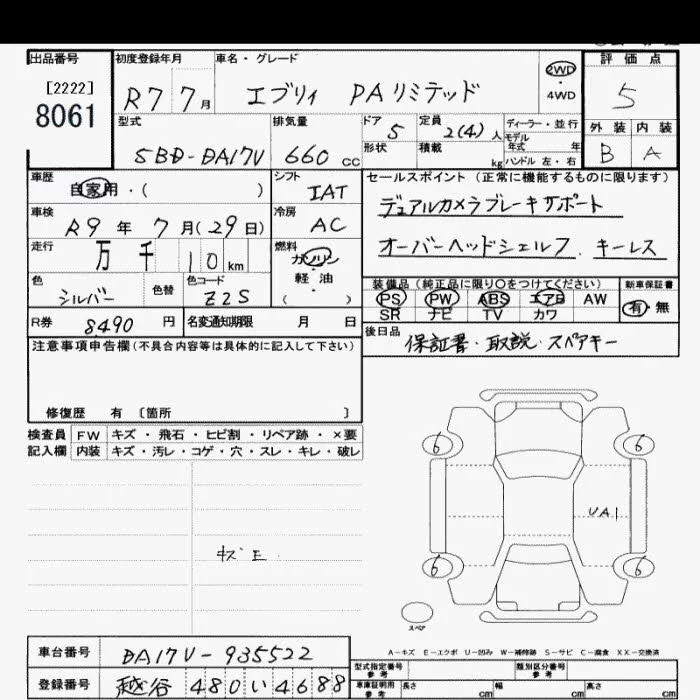 出品番号 初度登録年月 車名・グレード 評価点
[2222] 2WD
8061 R7 7月 エブリイ PAリミテッド ・4WD 5
型式 排気量 ドア 5 定員 2(4)人 ディーラー・並行 外装 内装
モデル
年式 年
5BD-DA17V 660 CC 形状 積載 kg ハンドル 左・右 B A
車歴 シフト セールスポイント (正常に機能するものに限ります)
自家用・( ) IAT デュアルカメラブレーキサポート
車検 冷房
R9 年 7 月(29日) AC
走行 燃料 オーバーヘッドシェルフ. キーレス
万 千 10 km ガソリン
・
軽油
( )
色 色替 色コード 装備品 (純正品に限り○をつけてください) 新車保証書
シルバー Z2S PS PW ABS エアB AW 有・無
SR ナビ TV カワ
R券 8490 円 名変通知期限 月 日 後日品
保証書・取説・スペアキー
注意事項申告欄(不具合内容等は具体的に記入して下さい)
修復歴 有 〔箇所 〕
検査員 FW キズ・飛石・ヒビ割・リペア跡・×要
記入欄 内装 キズ・汚レ・コゲ・穴・スレ・キレ・破レ
6 6
UA1
キズE
6 6
スペア
A-キズ E-エクボ U-凹み W-補修跡 S-サビ C-腐食 XX-交換済
車台番号 DA17V-935522
型式指定番号 参考 類別区分番号 参考
登録番号 越谷 480 い 4688
車庫証明用 参考 長さ cm 幅 cm 高さ cm